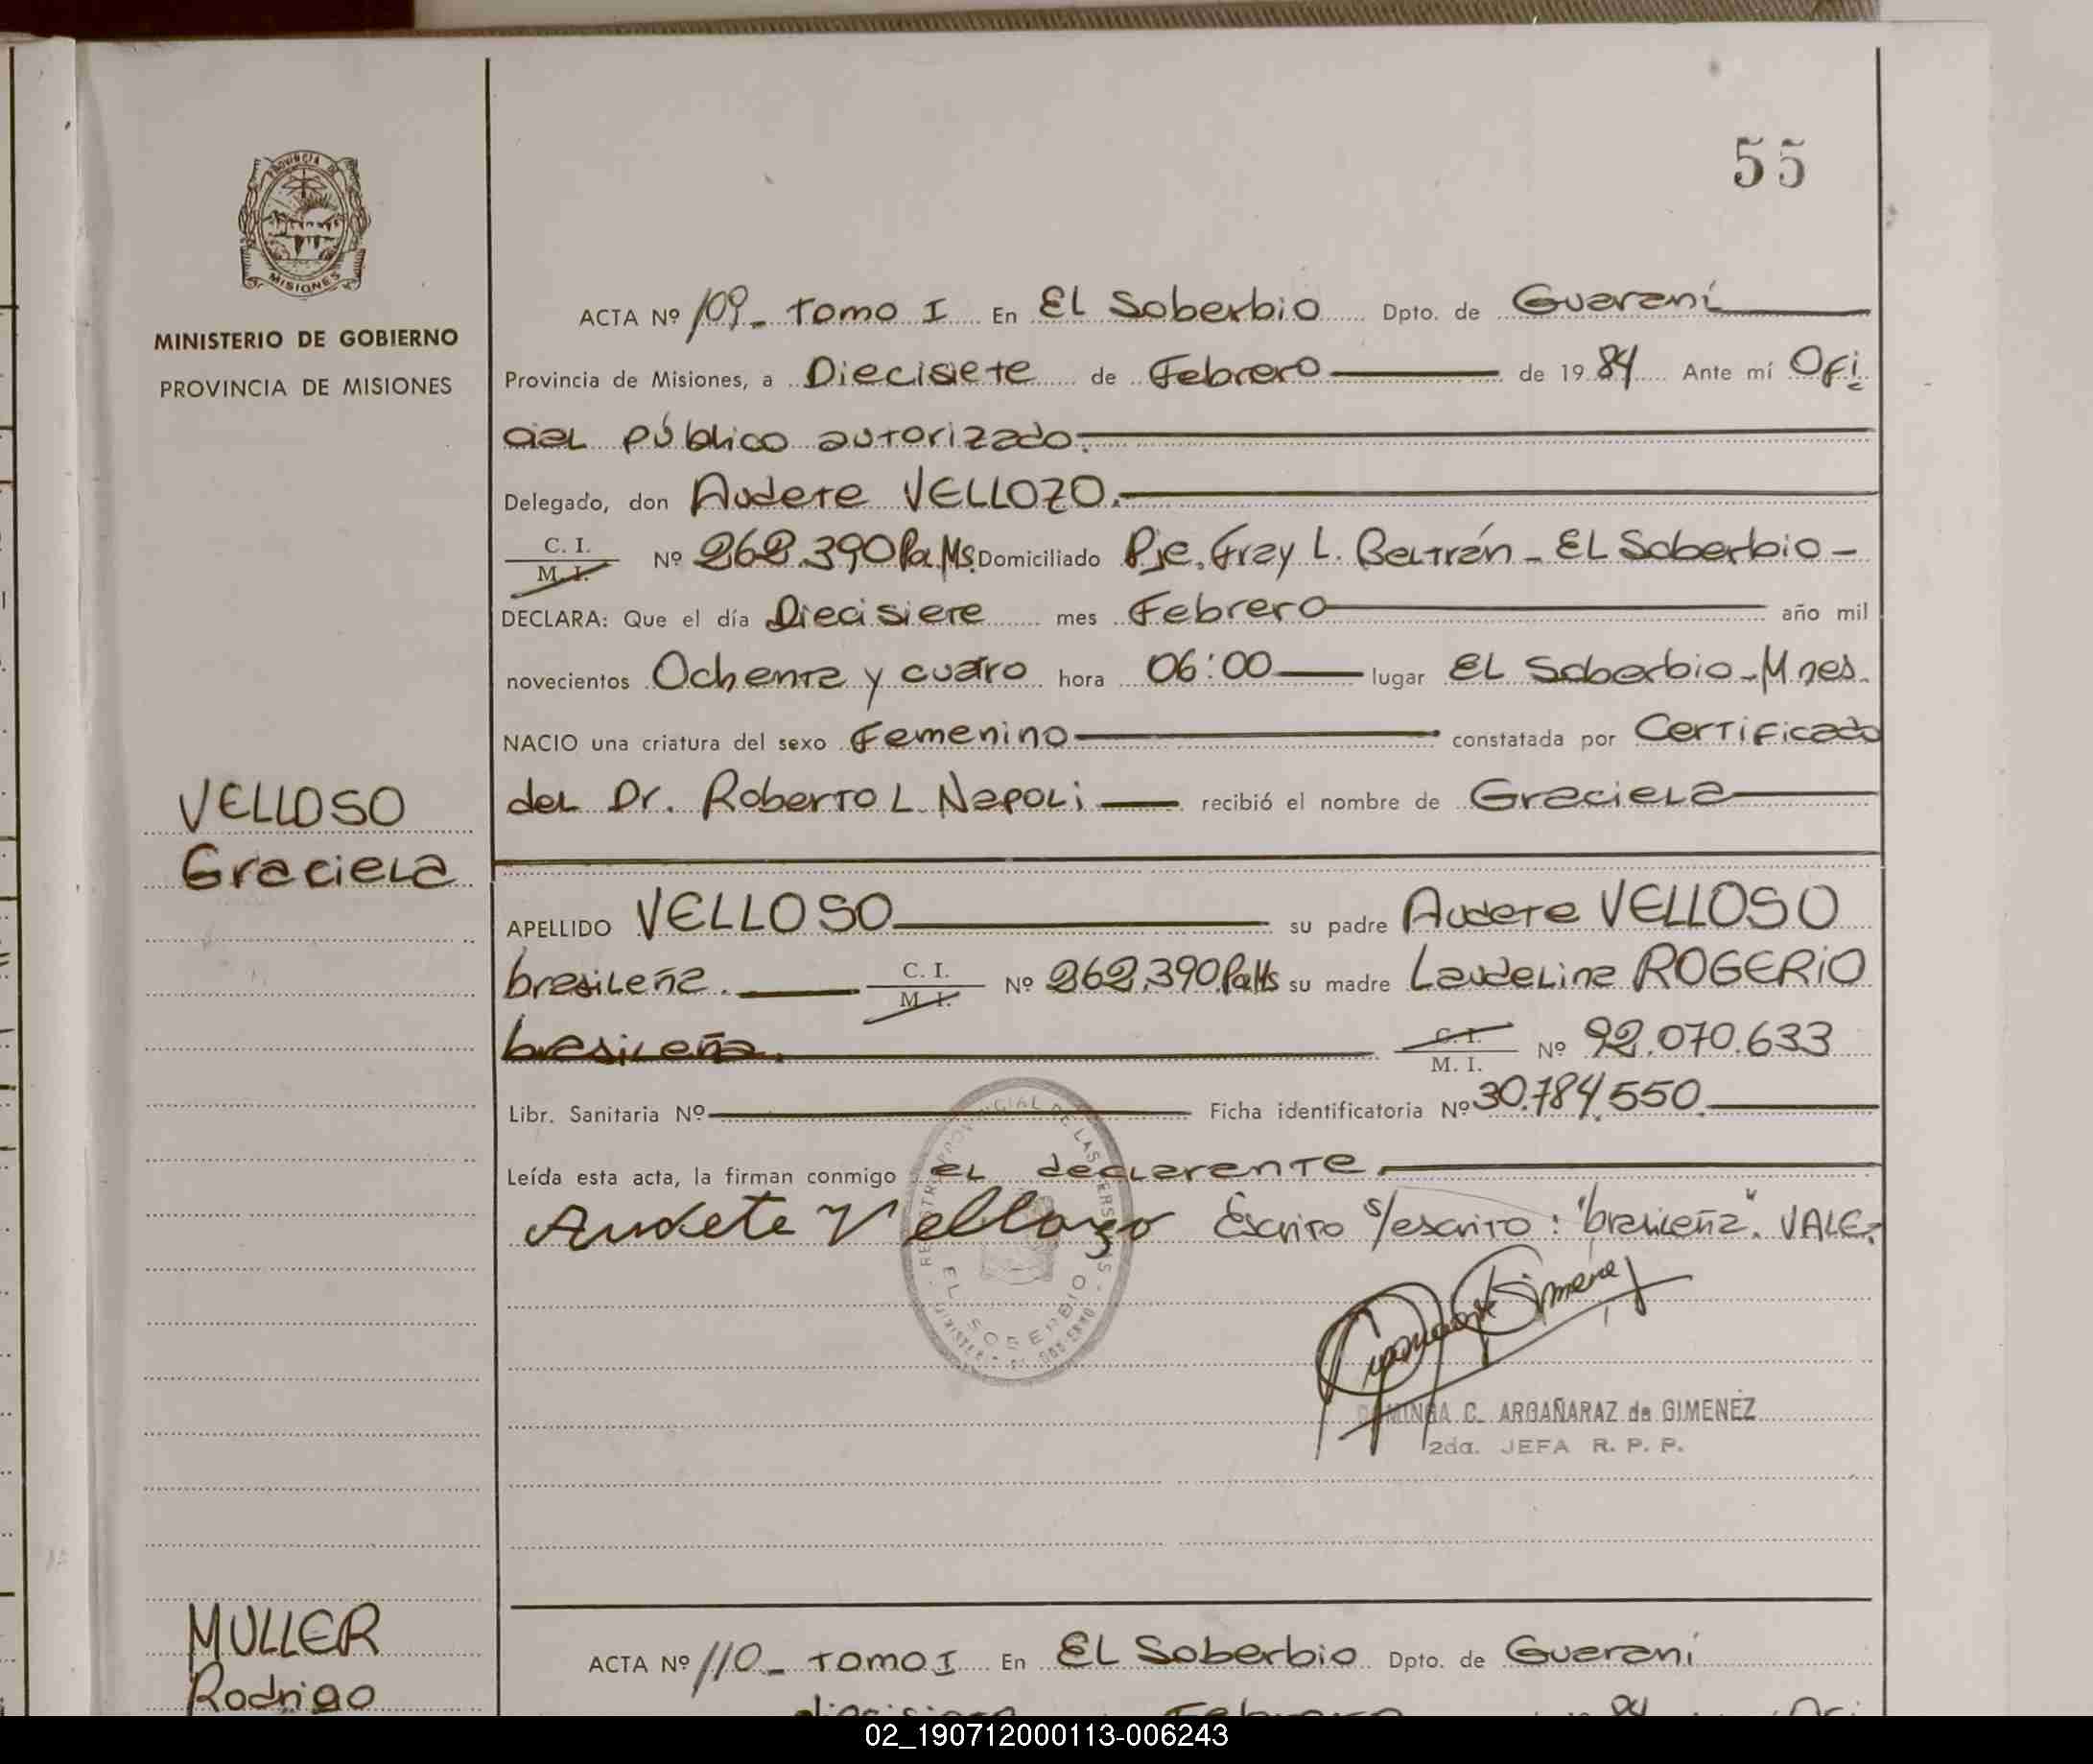 55
PROVINCIA DE
MISIONES
MINISTERIO DE GOBIERNO
PROVINCIA DE MISIONES
ACTA Nº 109_ Tomo I En EL Soberbio Dpto. de Guaraní
Provincia de Misiones, a Diecisiete de Febrero de 1984 Ante mí Ofi
cial público autorizado.
Delegado, don Audete VELLOZO.
C. I.
M. I. Nº 262.390 Pa.Ms. Domiciliado Pje. Fray L. Beltrán - EL Soberbio -
DECLARA: Que el día Diecisiete mes Febrero año mil
novecientos Ochenta y cuatro hora 06:00 lugar EL Soberbio - Mnes.
NACIO una criatura del sexo Femenino constatada por Certificado
del Dr. Roberto L. Napoli recibió el nombre de Graciela
VELLOSO
Graciela
APELLIDO VELLOSO su padre Audete VELLOSO
brasileña. C. I.
M. I. Nº 262.390 PaMs su madre Laudelina ROGERIO
brasileña. C. I.
M. I. Nº 92.070.633
Libr. Sanitaria Nº Ficha identificatoria Nº 30.784.550.
Leída esta acta, la firman conmigo el declarante.
Audete Vellozo Escrito s/escrito: "brasileña". VALE.
EL SOBERBIO
C. ARGAÑARAZ de GIMENEZ
2da. JEFA R. P. P.
MULLER
Rodrigo
ACTA Nº 110_ Tomo I En EL Soberbio Dpto. de Guaraní
02_190712000113-006243